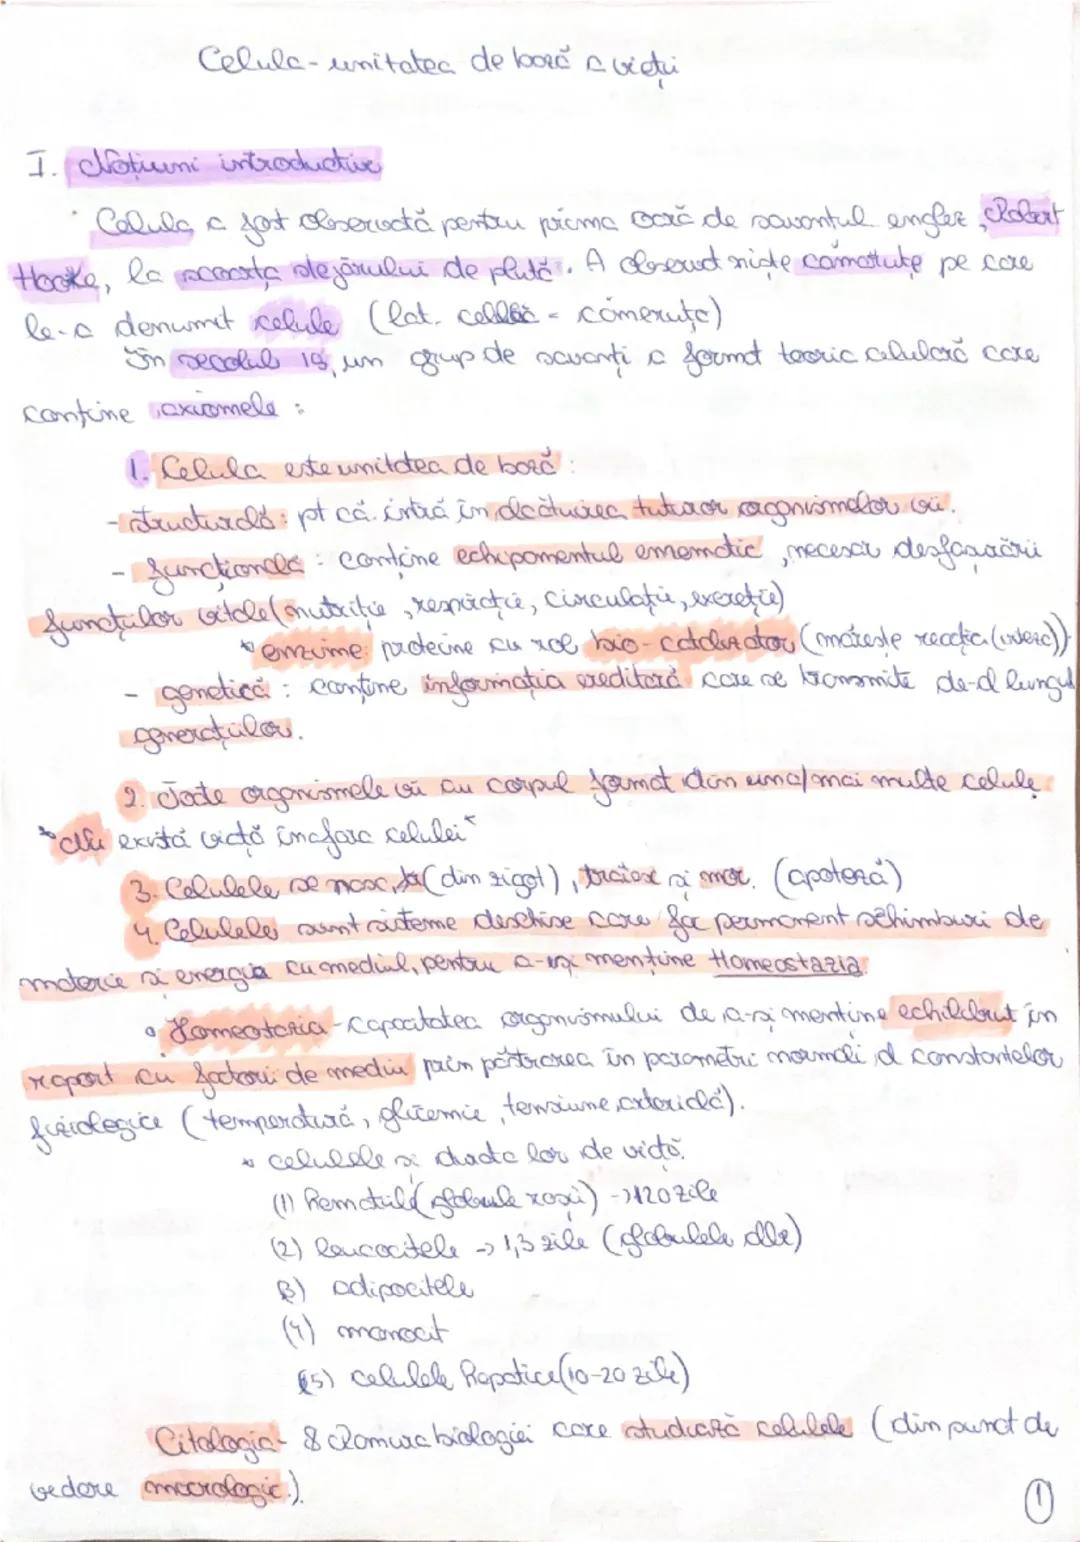 Celula - unitatea de bază a vieții
I. Noțiuni introductive
Celula a fost observată pentru prima oară de savantul englez, Robert
Hooke, la scoarța stejarului de plută. A observat niște cămăruțe pe care
le-a denumit celule (lat. cella - cămeruțe)
În secolul 19, un grup de savanți a format teoria celulară care
conține axiomele :
1. Celula este unitatea de bază :
- structurală : pt că intră în alcătuirea tuturor organismelor vii.
- funcțională : conține echipamentul enzimatic, necesar desfășurării
funcțiilor vitale (nutriție, respirație, circulație, excreție)
* enzime: proteine cu rol bio-catalizator (mărește reacția (viteza))
- genetică : conține informația ereditară care se transmite de-al lungul
generațiilor.
2. Toate organismele vii au corpul format din una/mai multe celule
* Nu există viață înafara celulei *
3. Celulele se nasc, (din zigot), trăiesc și mor. (apoteză)
4. Celulele sunt sisteme deschise care fac permanent schimburi de
materie și energia cu mediul, pentru a-și menține Homeostazia.
Homeostazia - capacitatea organismului de a-și menține echilibrul în
raport cu factorii de mediu prin păstrarea în parametri normali al constantelor
fiziologice (temperatură, glicemie, tensiune arterială).
* celulele și durata lor de viață.
(1) hematiile (globule roșii) -> 120 zile
(2) leucocitele -> 1,3 zile (globulele albe)
(3) adipocitele
(4) monocit
(5) celulele hepatice (10-20 zile)
Citologia - Ramura biologiei care studiază celulele (din punct de
vedere morfologic.)
1